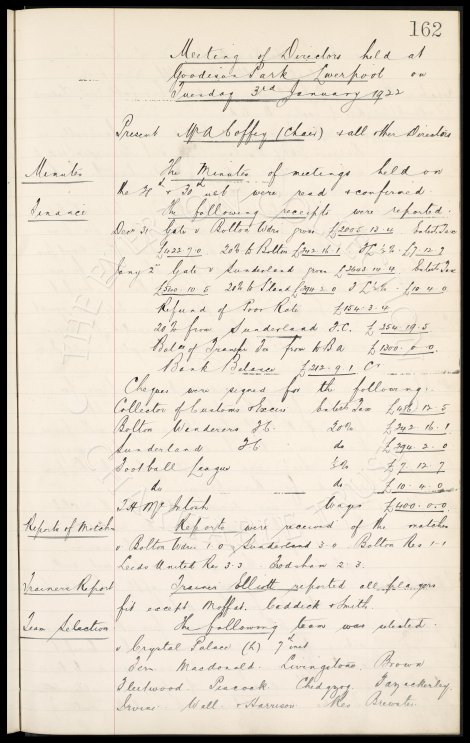 162
Meeting of Directors held at
Goodison Park Liverpool on
Tuesday 3rd January 1922
Present Mr A Coffey (Chair) & all other Directors
Minutes
The Minutes of meetings held on
the & 30th ult were read & confirmed
Finance
The following receipts were reported.
Decr 31 Gate v Bolton Wdrs gross £2005.13.4 Entets Tax
£422.7.0 20% to Bolton £242.16.1 F.L ½% £7.12.7
Jany 2nd Gate v Sunderland gross £2643.14.4 Entets Tax
20% to £294.2.0 F.L ½% £10.4.0
Refund of Poor Rate £154.3.4
20% from Sunderland F.C. £254.19.5
Balce of Transfer Fee from £1300.0.0
Bank Balance £212.9.1 Cr
Cheques were signed for the following.
Collector of Customs & Excise Entets Tax
Bolton Wanderers F.C. 20% £242.16.1
Sunderland F.C. do £294.2.0
Football League ½% £7.12.7
do do £10.4.0
T.H. McIntosh Wages £400.0.0
Reports of Matches
Reports were received of the matches
v Bolton Wdrs 1.0 Sunderland 3.0 Bolton Res 1.1
Leeds United Res 3.3 Frodsham 2.3.
Trainers Report
Trainer Elliott reported all players
fit except Moffat. Caddick & Smith.
Team Selection
The following team was selected.
v Crystal Palace (h) 7th inst
Fern Macdonald. Livingstone. Brown
Fleetwood. Peacock. Chedgzoy. Fazackerley.
Irvine. Wall. & Harrison. Res Brewster